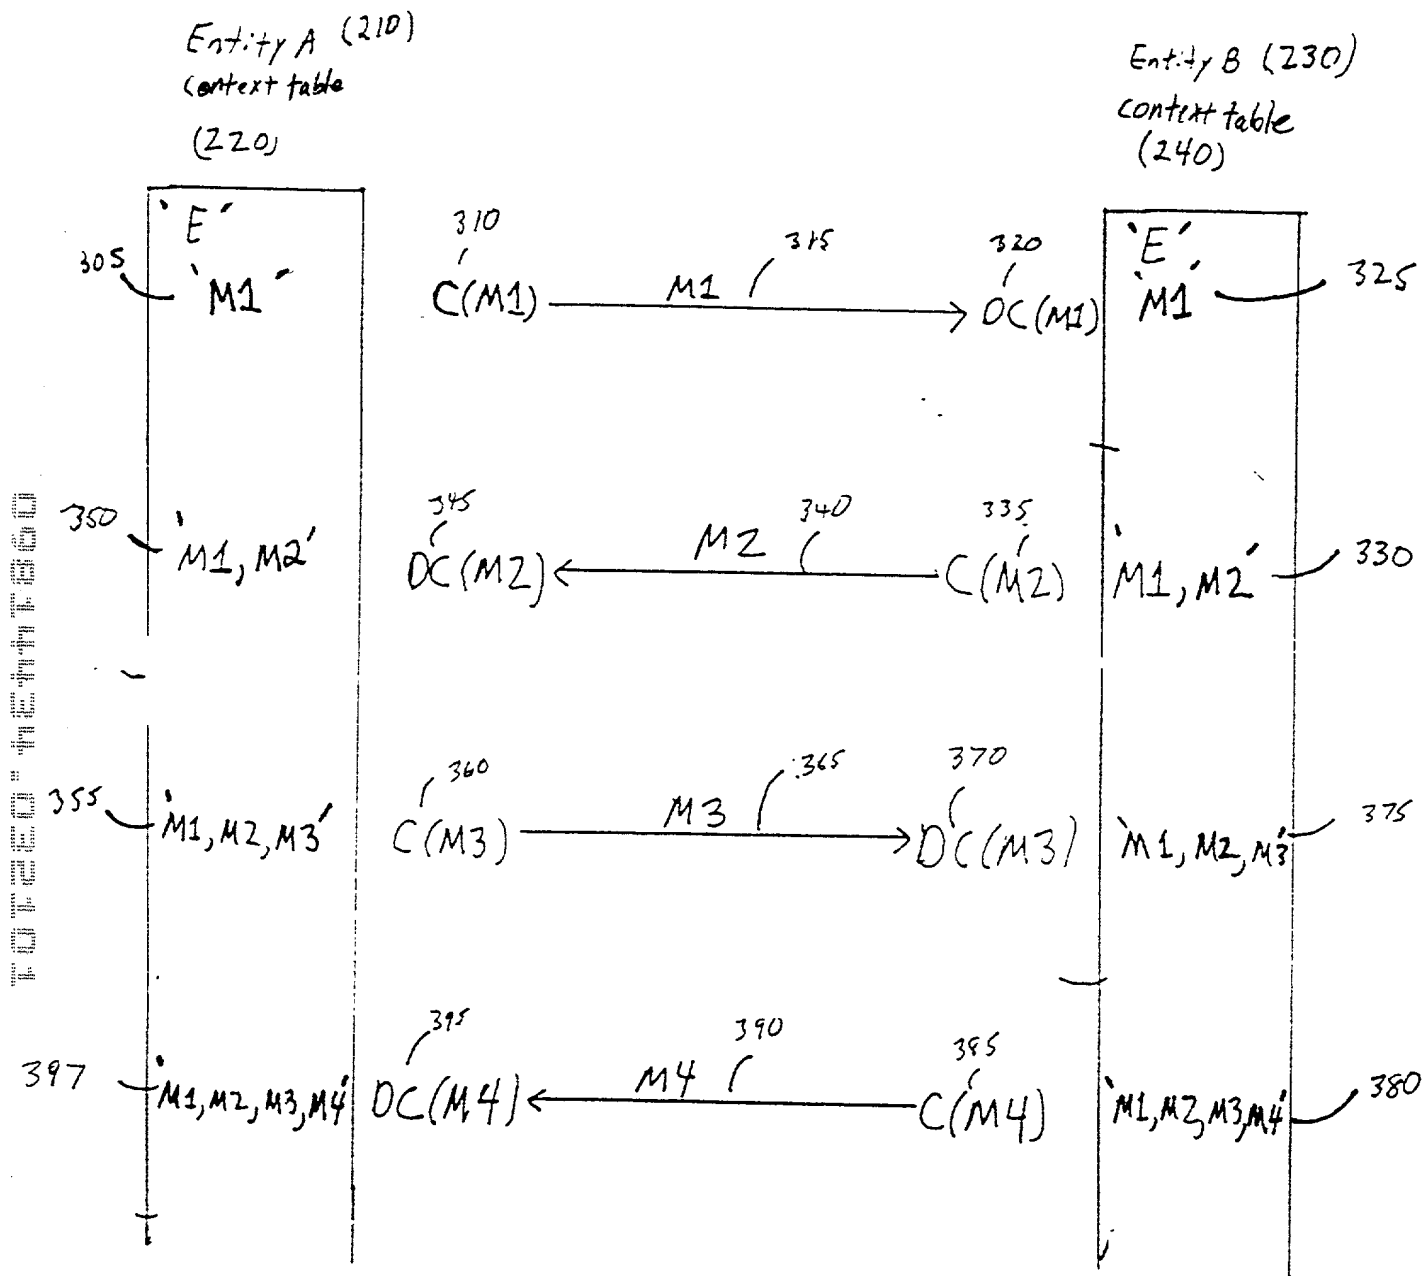 Entity A (210)
context table
(220)
Entity B (230)
context table
(240)
`E´
305 `M1´
310
C(M1)
M1 315
320
DC(M1)
`E´
`M1´ 325
350 `M1, M2´
345
DC(M2)
M2 340
335
C(M2)
`M1, M2´ 330
355 `M1, M2, M3´
360
C(M3)
M3 365
370
DC(M3)
`M1, M2, M3´ 375
397 `M1, M2, M3, M4´
395
DC(M4)
M4 390
385
C(M4)
`M1, M2, M3, M4´ 380